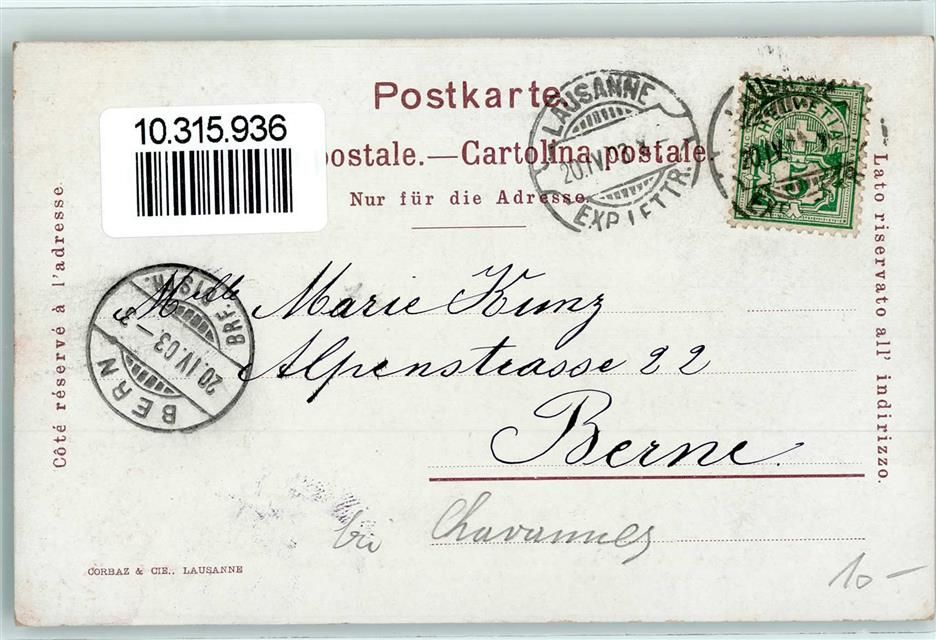 Postkarte.
10.315.936
postale.—Cartolina postale.
Nur für die Adresse.
LAUSANNE
20.IV.03
EXP. LETTR.
HELVETIA
5
Côté réservé à l'adresse.
Lato riservato all' indirizzo.
BERN
20.IV.03.-3
BRF. DIST.
Mlle Marie Kunz
Alpenstrasse 22
Berne.
bei Chavannes
CORBAZ & CIE., LAUSANNE
10-